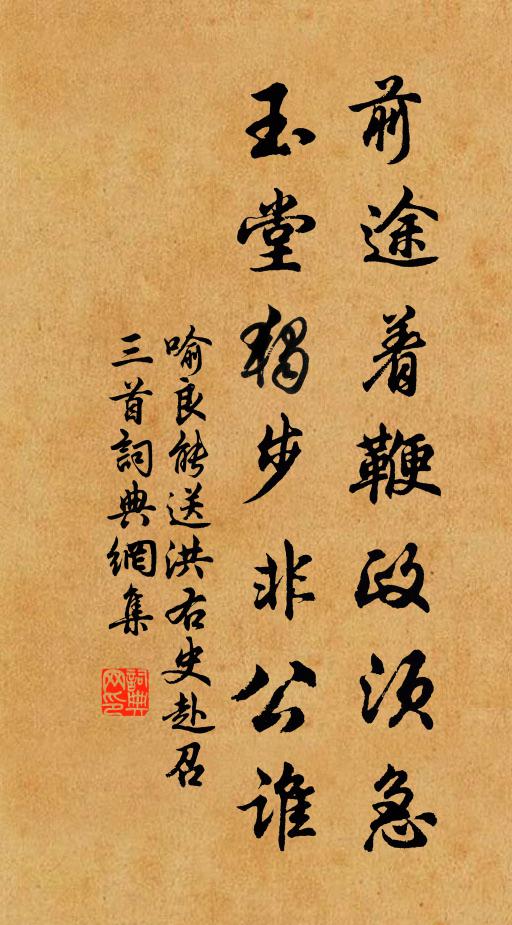 前途着鞭政须急
玉堂独步非公谁
喻良能送洪右史赴召
三首詞典網集
詞典网印